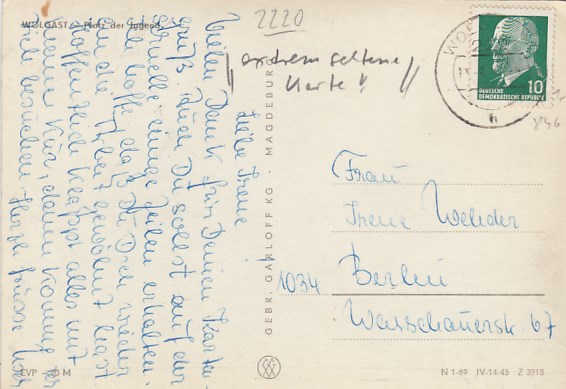 WOLGAST / Platz der Jugend
2220
" extrem seltene
Karte! "
WOL
10
DEUTSCHE
DEMOKRATISCHE REPUBLIK
h
846
Liebe Irene!
Vielen Dank für Deinen Karten-
gruß. Auch Du sollst auf der
Schnelle einige Zeilen erhalten.
Ich hoffe, daß Du Dich wieder
an die Arbeit gewöhnt hast.
Hoffentlich klappt alles mit
meine Kur, dann komme
Dich besuchen. Herzl. Grüsse
GEBR. GARLOFF KG · MAGDEBURG
Frau
Irene
1034 Berlin
67
EVP -20 M
N 1-69 IV-14-45 Z 3918